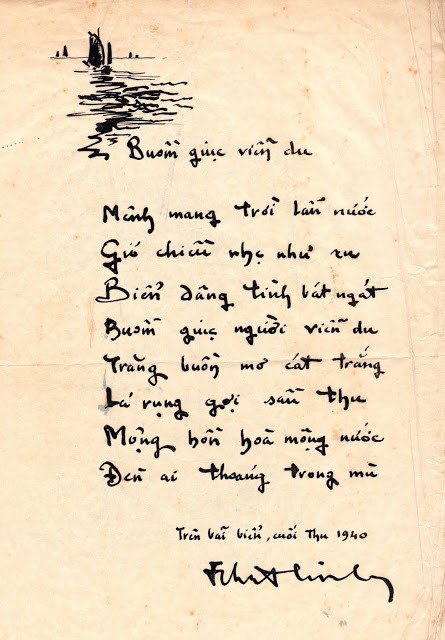 Buồm giục viễn du
Mênh mang trời lẫn nước
Gió chiều nhẹ như ru
Biển dâng tình bát ngát
Buồm giục người viễn du
Trăng buồn mơ cát trắng
Lá rụng gợi sầu thu
Mộng hồn hoà mộng nước
Đèn ai thoáng trong mù
Trên bãi biển, cuối Thu 1940
Nhất Linh